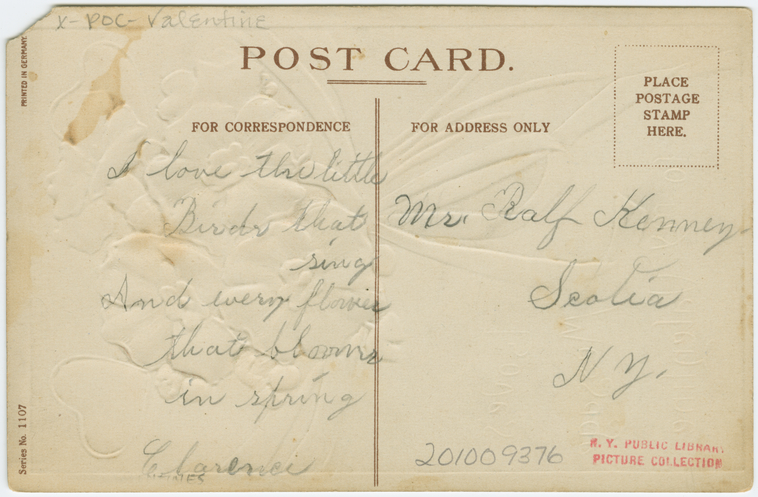 X- POC- Valentine
PRINTED IN GERMANY
POST CARD.
PLACE
POSTAGE
STAMP
HERE.
FOR CORRESPONDENCE
FOR ADDRESS ONLY
I love the little
Birds that
sing
And every flower
that blooms
in spring
Clarence
Mr. Ralf Kenney
Scotia
N Y.
Series No. 1107
201009376
N. Y. PUBLIC LIBRARY
PICTURE COLLECTION